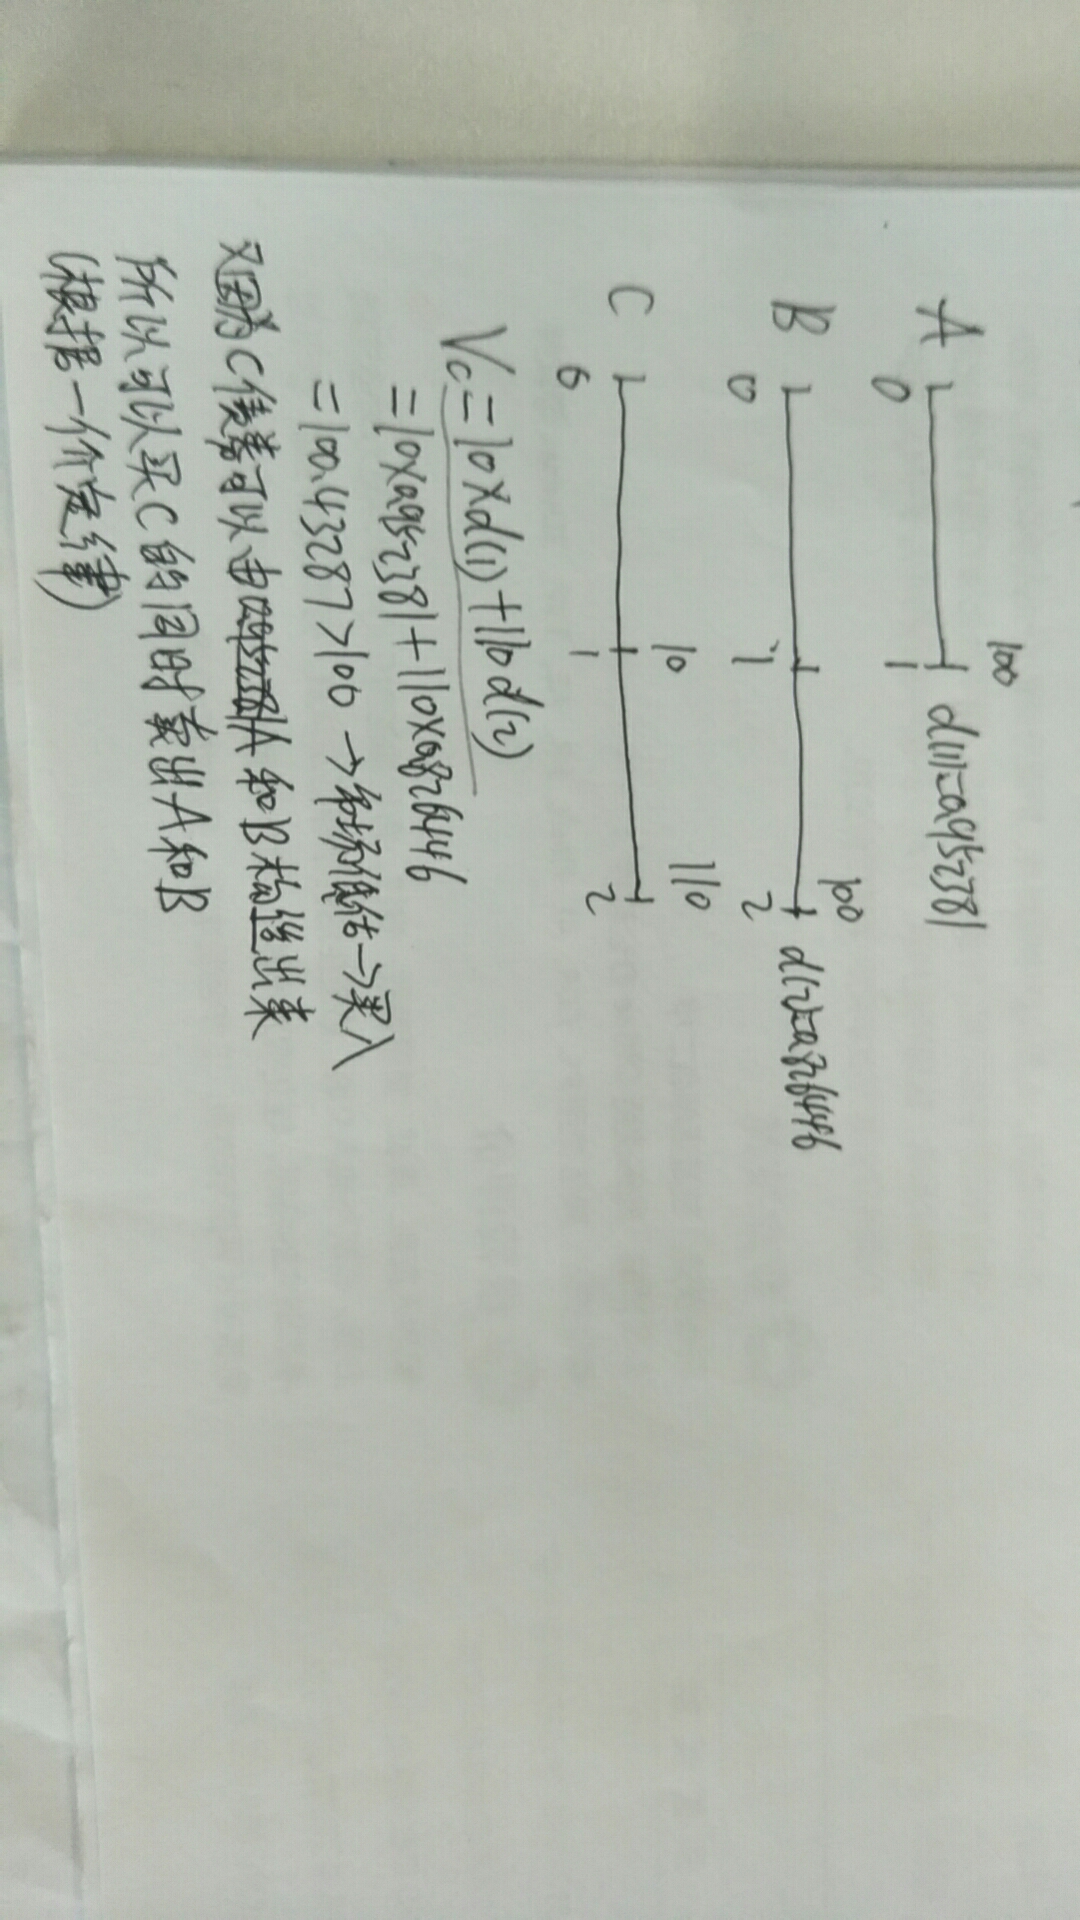 A 0 1 100 d(1)=0.952381
B 0 1 2 100 d(2)=0.826446
C 0 1 10 2 110
Vc=10×d(1)+110d(2)
=10×0.952381+110×0.826446
=100.43287>100 →市场低估→买入
又因为C债券可以由A和B构造出来
所以可以买C的同时卖出A和B
(根据一价定律)